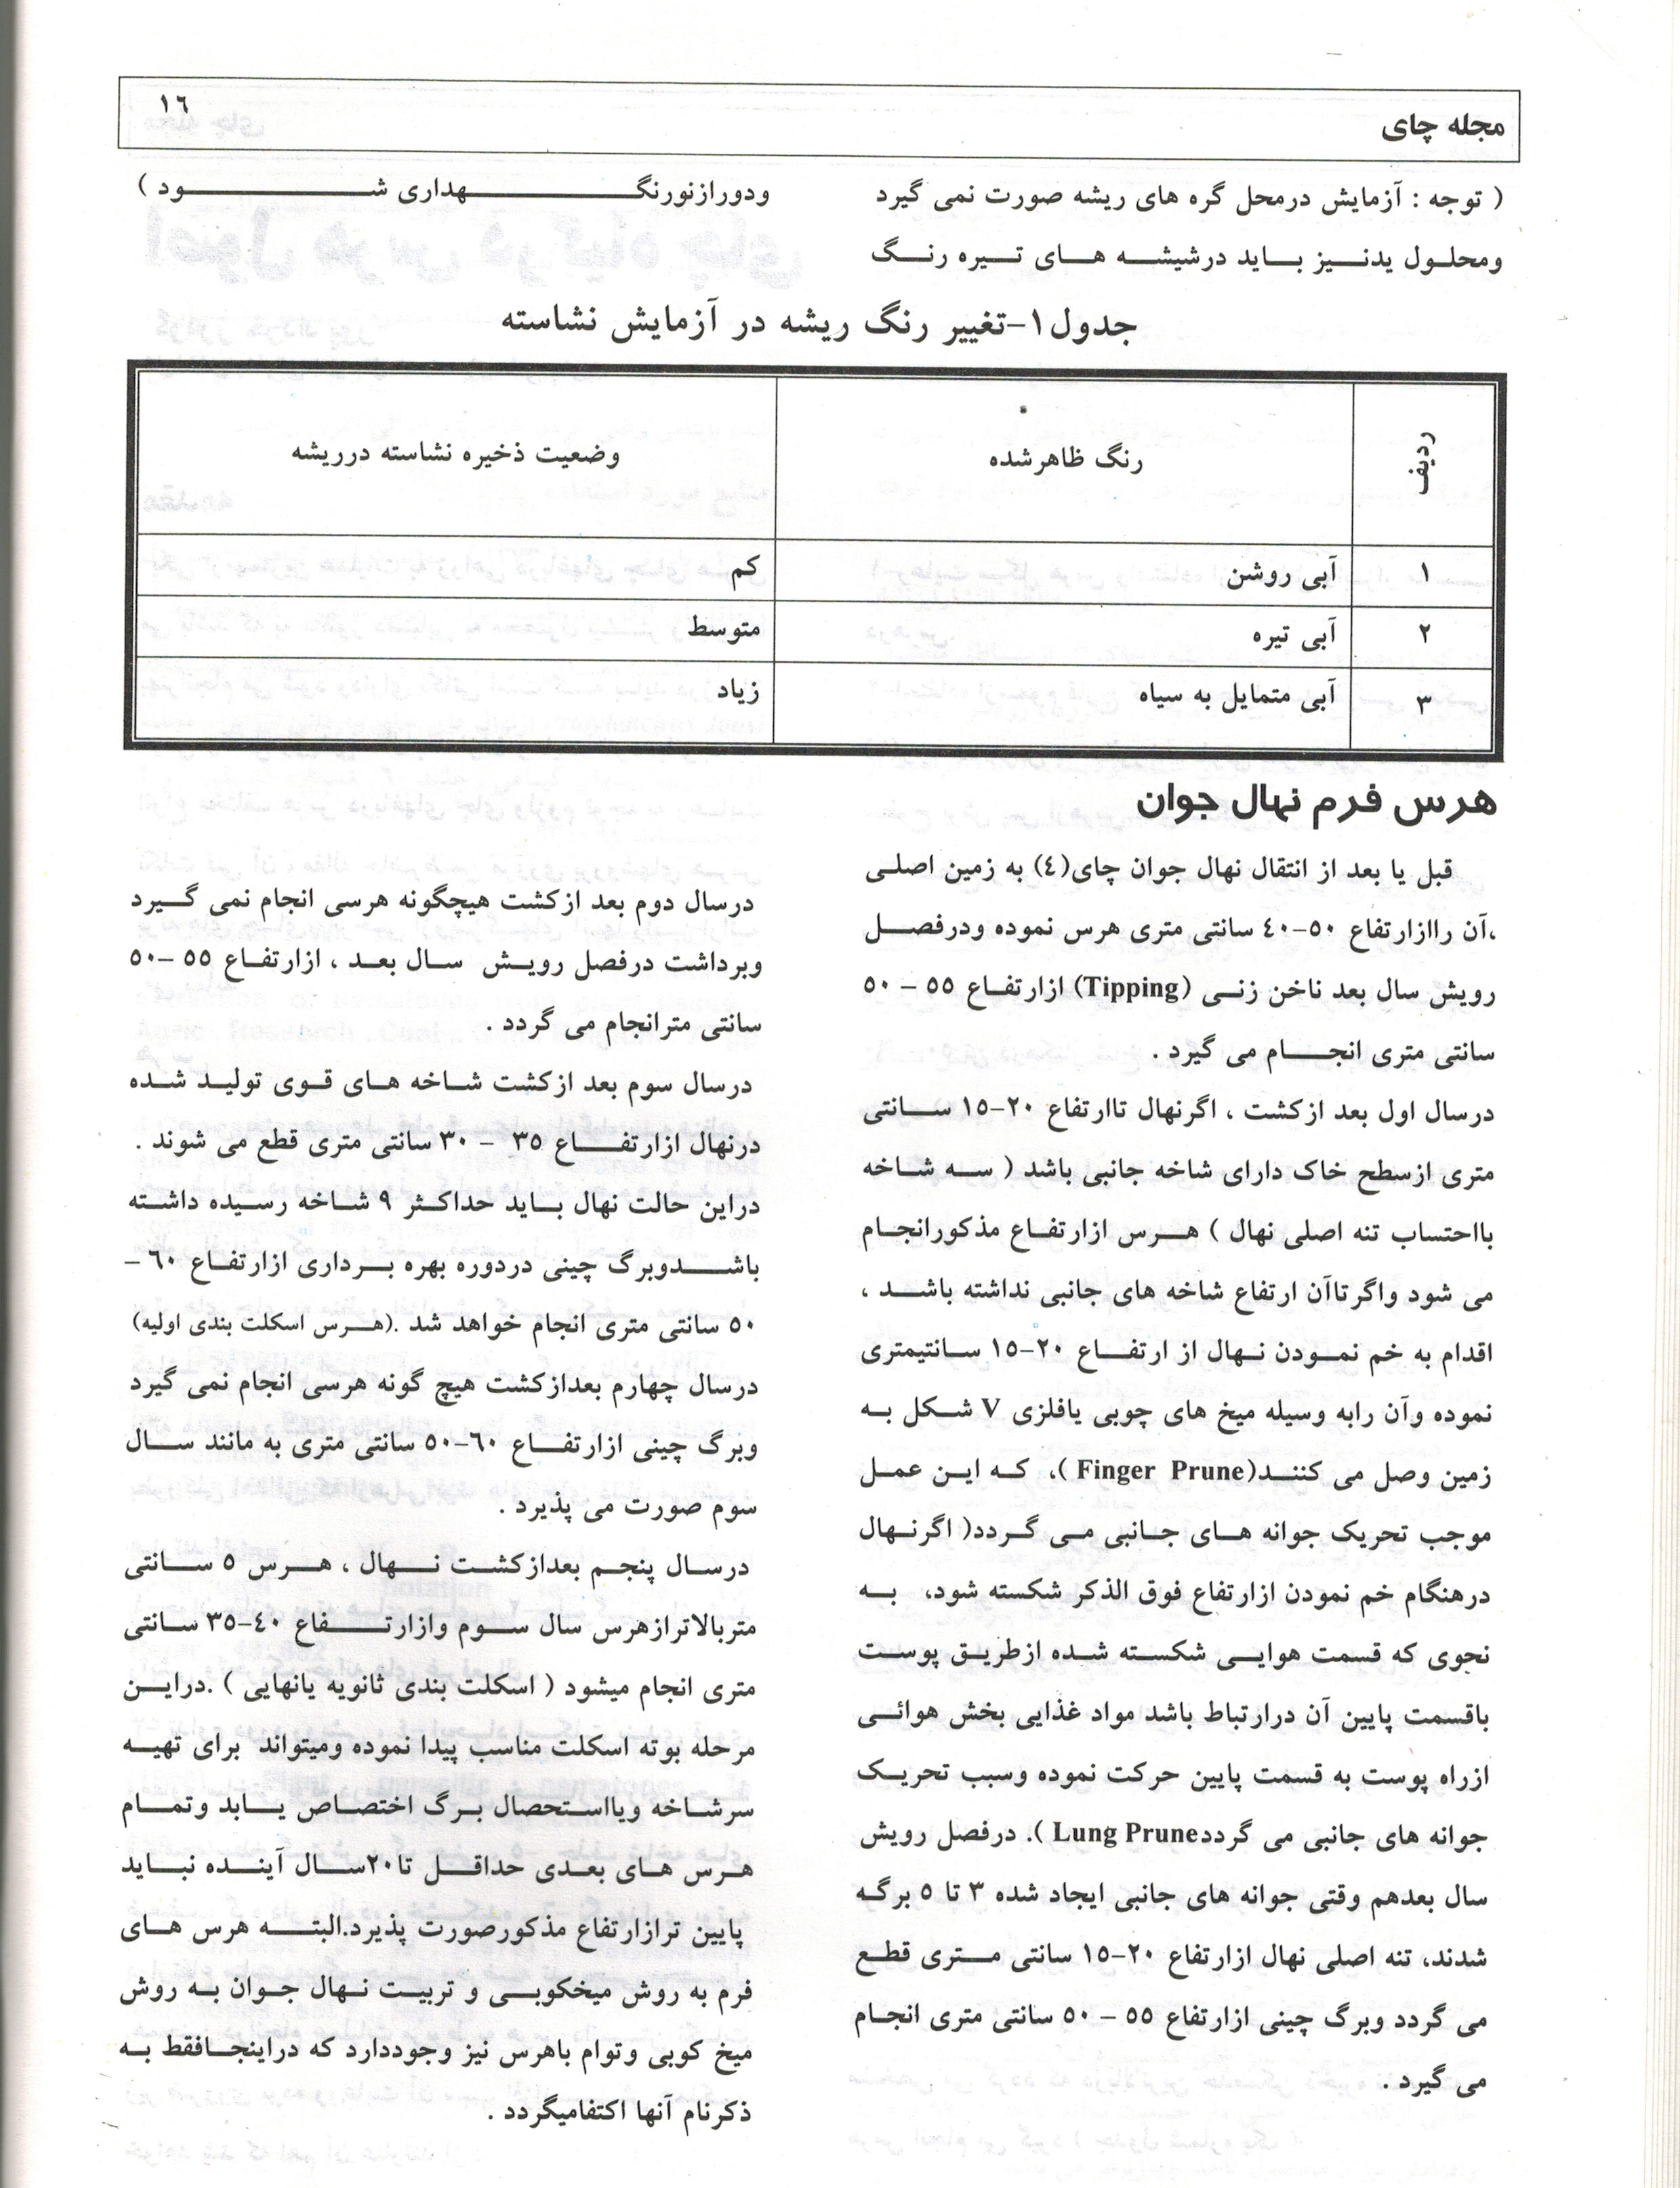 مجله چای
١٦
( توجه : آزمایش درمحل گره های ریشه صورت نمی گیرد
ومحلول یدنیز باید درشیشه های تیره رنگ
ودورازنورنگهداری شود )
جدول١-تغییر رنگ ریشه در آزمایش نشاسته
ردیف رنگ ظاهرشده وضعیت ذخیره نشاسته درریشه
١ آبی روشن کم
٢ آبی تیره متوسط
٣ آبی متمایل به سیاه زیاد
هرس فرم نهال جوان
قبل یا بعد از انتقال نهال جوان چای(٤) به زمین اصلی
،آن راازارتفاع ٥٠-٤٠ سانتی متری هرس نموده ودرفصل
رویش سال بعد ناخن زنی (Tipping) ازارتفاع ٥٥ - ٥٠
سانتی متری انجام می گیرد .
درسال اول بعد ازکشت ، اگرنهال تاارتفاع ٢٠-١٥ سانتی
متری ازسطح خاک دارای شاخه جانبی باشد ( سه شاخه
بااحتساب تنه اصلی نهال ) هرس ازارتفاع مذکورانجام
می شود واگرتاآن ارتفاع شاخه های جانبی نداشته باشد ،
اقدام به خم نمودن نهال از ارتفاع ٢٠-١٥ سانتیمتری
نموده وآن رابه وسیله میخ های چوبی یافلزی V شکل به
زمین وصل می کنند(Finger Prune )، که این عمل
موجب تحریک جوانه های جانبی می گردد( اگرنهال
درهنگام خم نمودن ازارتفاع فوق الذکر شکسته شود، به
نحوی که قسمت هوایی شکسته شده ازطریق پوست
باقسمت پایین آن درارتباط باشد مواد غذایی بخش هوائی
ازراه پوست به قسمت پایین حرکت نموده وسبب تحریک
جوانه های جانبی می گرددLung Prune ). درفصل رویش
سال بعدهم وقتی جوانه های جانبی ایجاد شده ٣ تا ٥ برگه
شدند، تنه اصلی نهال ازارتفاع ٢٠-١٥ سانتی متری قطع
می گردد وبرگ چینی ازارتفاع ٥٥ - ٥٠ سانتی متری انجام
می گیرد .
درسال دوم بعد ازکشت هیچگونه هرسی انجام نمی گیرد
وبرداشت درفصل رویش سال بعد ، ازارتفاع ٥٥ -٥٠
سانتی مترانجام می گردد .
درسال سوم بعد ازکشت شاخه های قوی تولید شده
درنهال ازارتفاع ٣٥ - ٣٠ سانتی متری قطع می شوند .
دراین حالت نهال باید حداکثر ٩ شاخه رسیده داشته
باشدوبرگ چینی دردوره بهره برداری ازارتفاع ٦٠-
٥٠ سانتی متری انجام خواهد شد .(هرس اسکلت بندی اولیه)
درسال چهارم بعدازکشت هیچ گونه هرسی انجام نمی گیرد
وبرگ چینی ازارتفاع ٦٠-٥٠ سانتی متری به مانند سال
سوم صورت می پذیرد .
درسال پنجم بعدازکشت نهال ، هرس ٥ سانتی
متربالاترازهرس سال سوم وازارتفاع ٤٠-٣٥ سانتی
متری انجام میشود ( اسکلت بندی ثانویه یانهایی ) .دراین
مرحله بوته اسکلت مناسب پیدا نموده ومیتواند برای تهیه
سرشاخه ویااستحصال برگ اختصاص یابد وتمام
هرس های بعدی حداقل تا٢٠سال آینده نباید
پایین ترازارتفاع مذکورصورت پذیرد.البته هرس های
فرم به روش میخکوبی و تربیت نهال جوان به روش
میخ کوبی وتوام باهرس نیز وجوددارد که دراینجافقط به
ذکرنام آنها اکتفامیگردد .